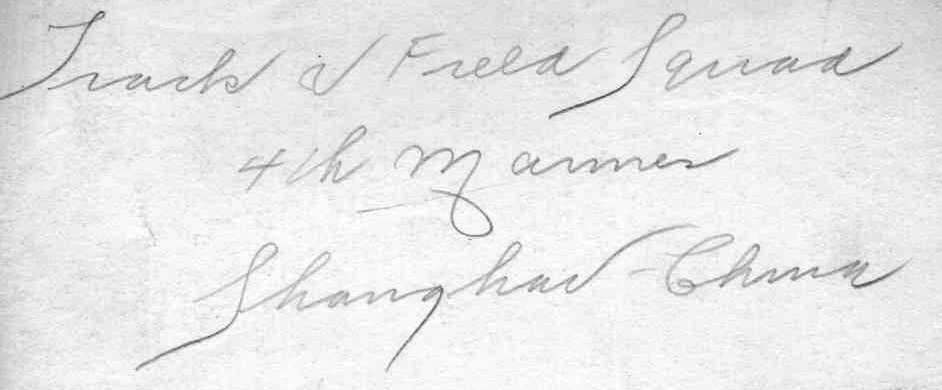 Track & Field Squad
4th Marines
Shanghai - China